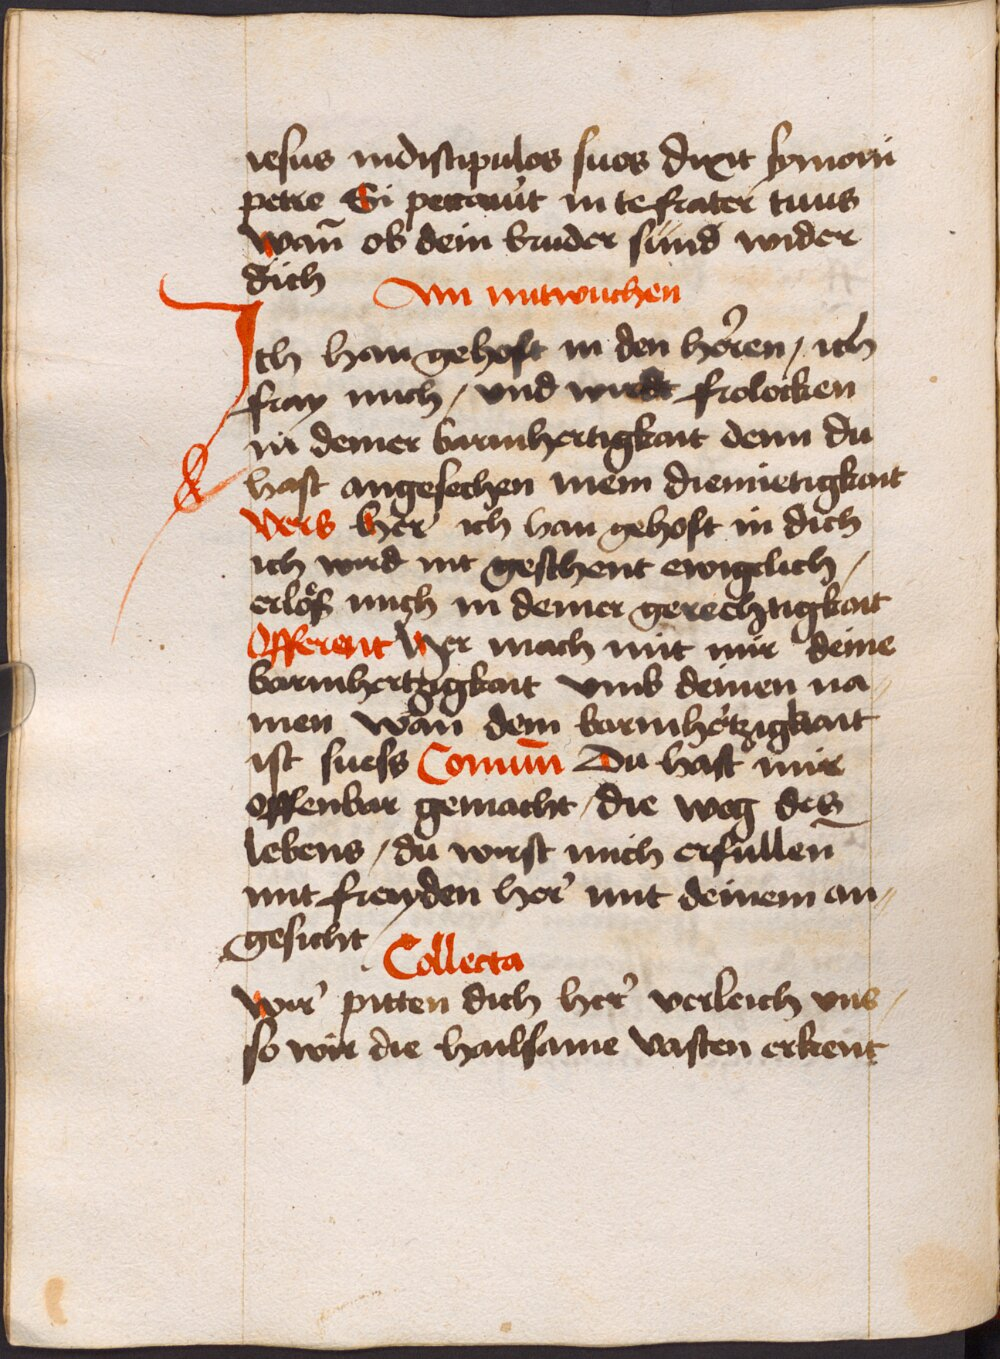 iesus indiscipulos suos dixit symoni
petre Si peccauit in te frater tuus
wan̄ ob dein bruder sünd wider
dich
An mitwuchen
Ich han gehoft in den heren / ich
fray mich / vnd wirdt frolocken
in deiner barmhertigkait denn du
hast angesechen mein diemietigkait
Vers her ich han gehoft in dich
ich wird nit geschent ewigclich /
erlös mich in deiner gerechtigkait
Offerent Her mach mit mir deine
barmhertzigkait vmb deinen na
men wan dein barmhertzigkait
ist suess Comun̄ Du hast mir
offenbar gemacht / die weg des
lebens / du wirst mich erfullen̄
mit freyden her mit deinem an
gesicht
Collecta
Wir pitten dich her verleich vns /
so wir die hailsame vasten erkent